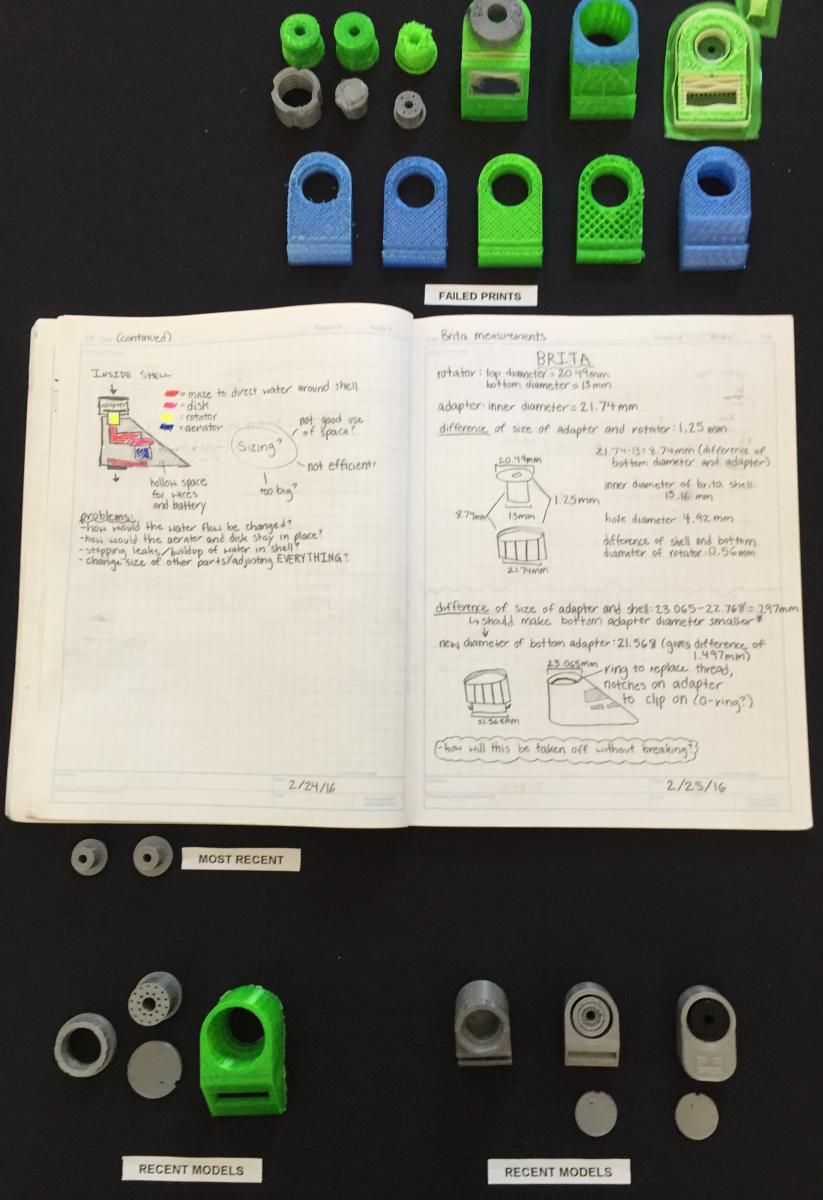 FAILED PRINTS
(continued)
INSIDE SHELL
adapter
= maze to direct water around shell
= disk
= rotator
= aerator
Sizing?
not good use
of space?
not efficient?
too big?
hollow space
for wires
and battery
problems:
-how would the water flow be changed?
-how would the aerator and disk stay in place?
-stopping leaks/buildup of water in shell?
-change size of other parts/adjusting EVERYTHING?
2/24/16
Brita measurements
BRITA
rotator: top diameter = 20.49mm
bottom diameter = 13mm
adapter: inner diameter = 21.74mm
difference of size of adapter and rotator: 1.25mm
20.49mm
1.25mm
8.74mm
13mm
21.74mm
21.74-13=8.74mm (difference of
bottom diameter and adapter)
inner diameter of brita shell:
mm
hole diameter: 4.92 mm
difference of shell and bottom
diameter of rotator: 0.56mm
difference of size of adapter and shell: 23.065-22.768=.297mm
↳ should make bottom adapter diameter smaller*
new diameter of bottom adapter: 21.568 (gives difference of
1.497mm)
23.065mm
21.568mm
ring to replace thread,
notches on adapter
to clip on (O-ring?)
-how will this be taken off without breaking?
2/25/16
MOST RECENT
RECENT MODELS
RECENT MODELS